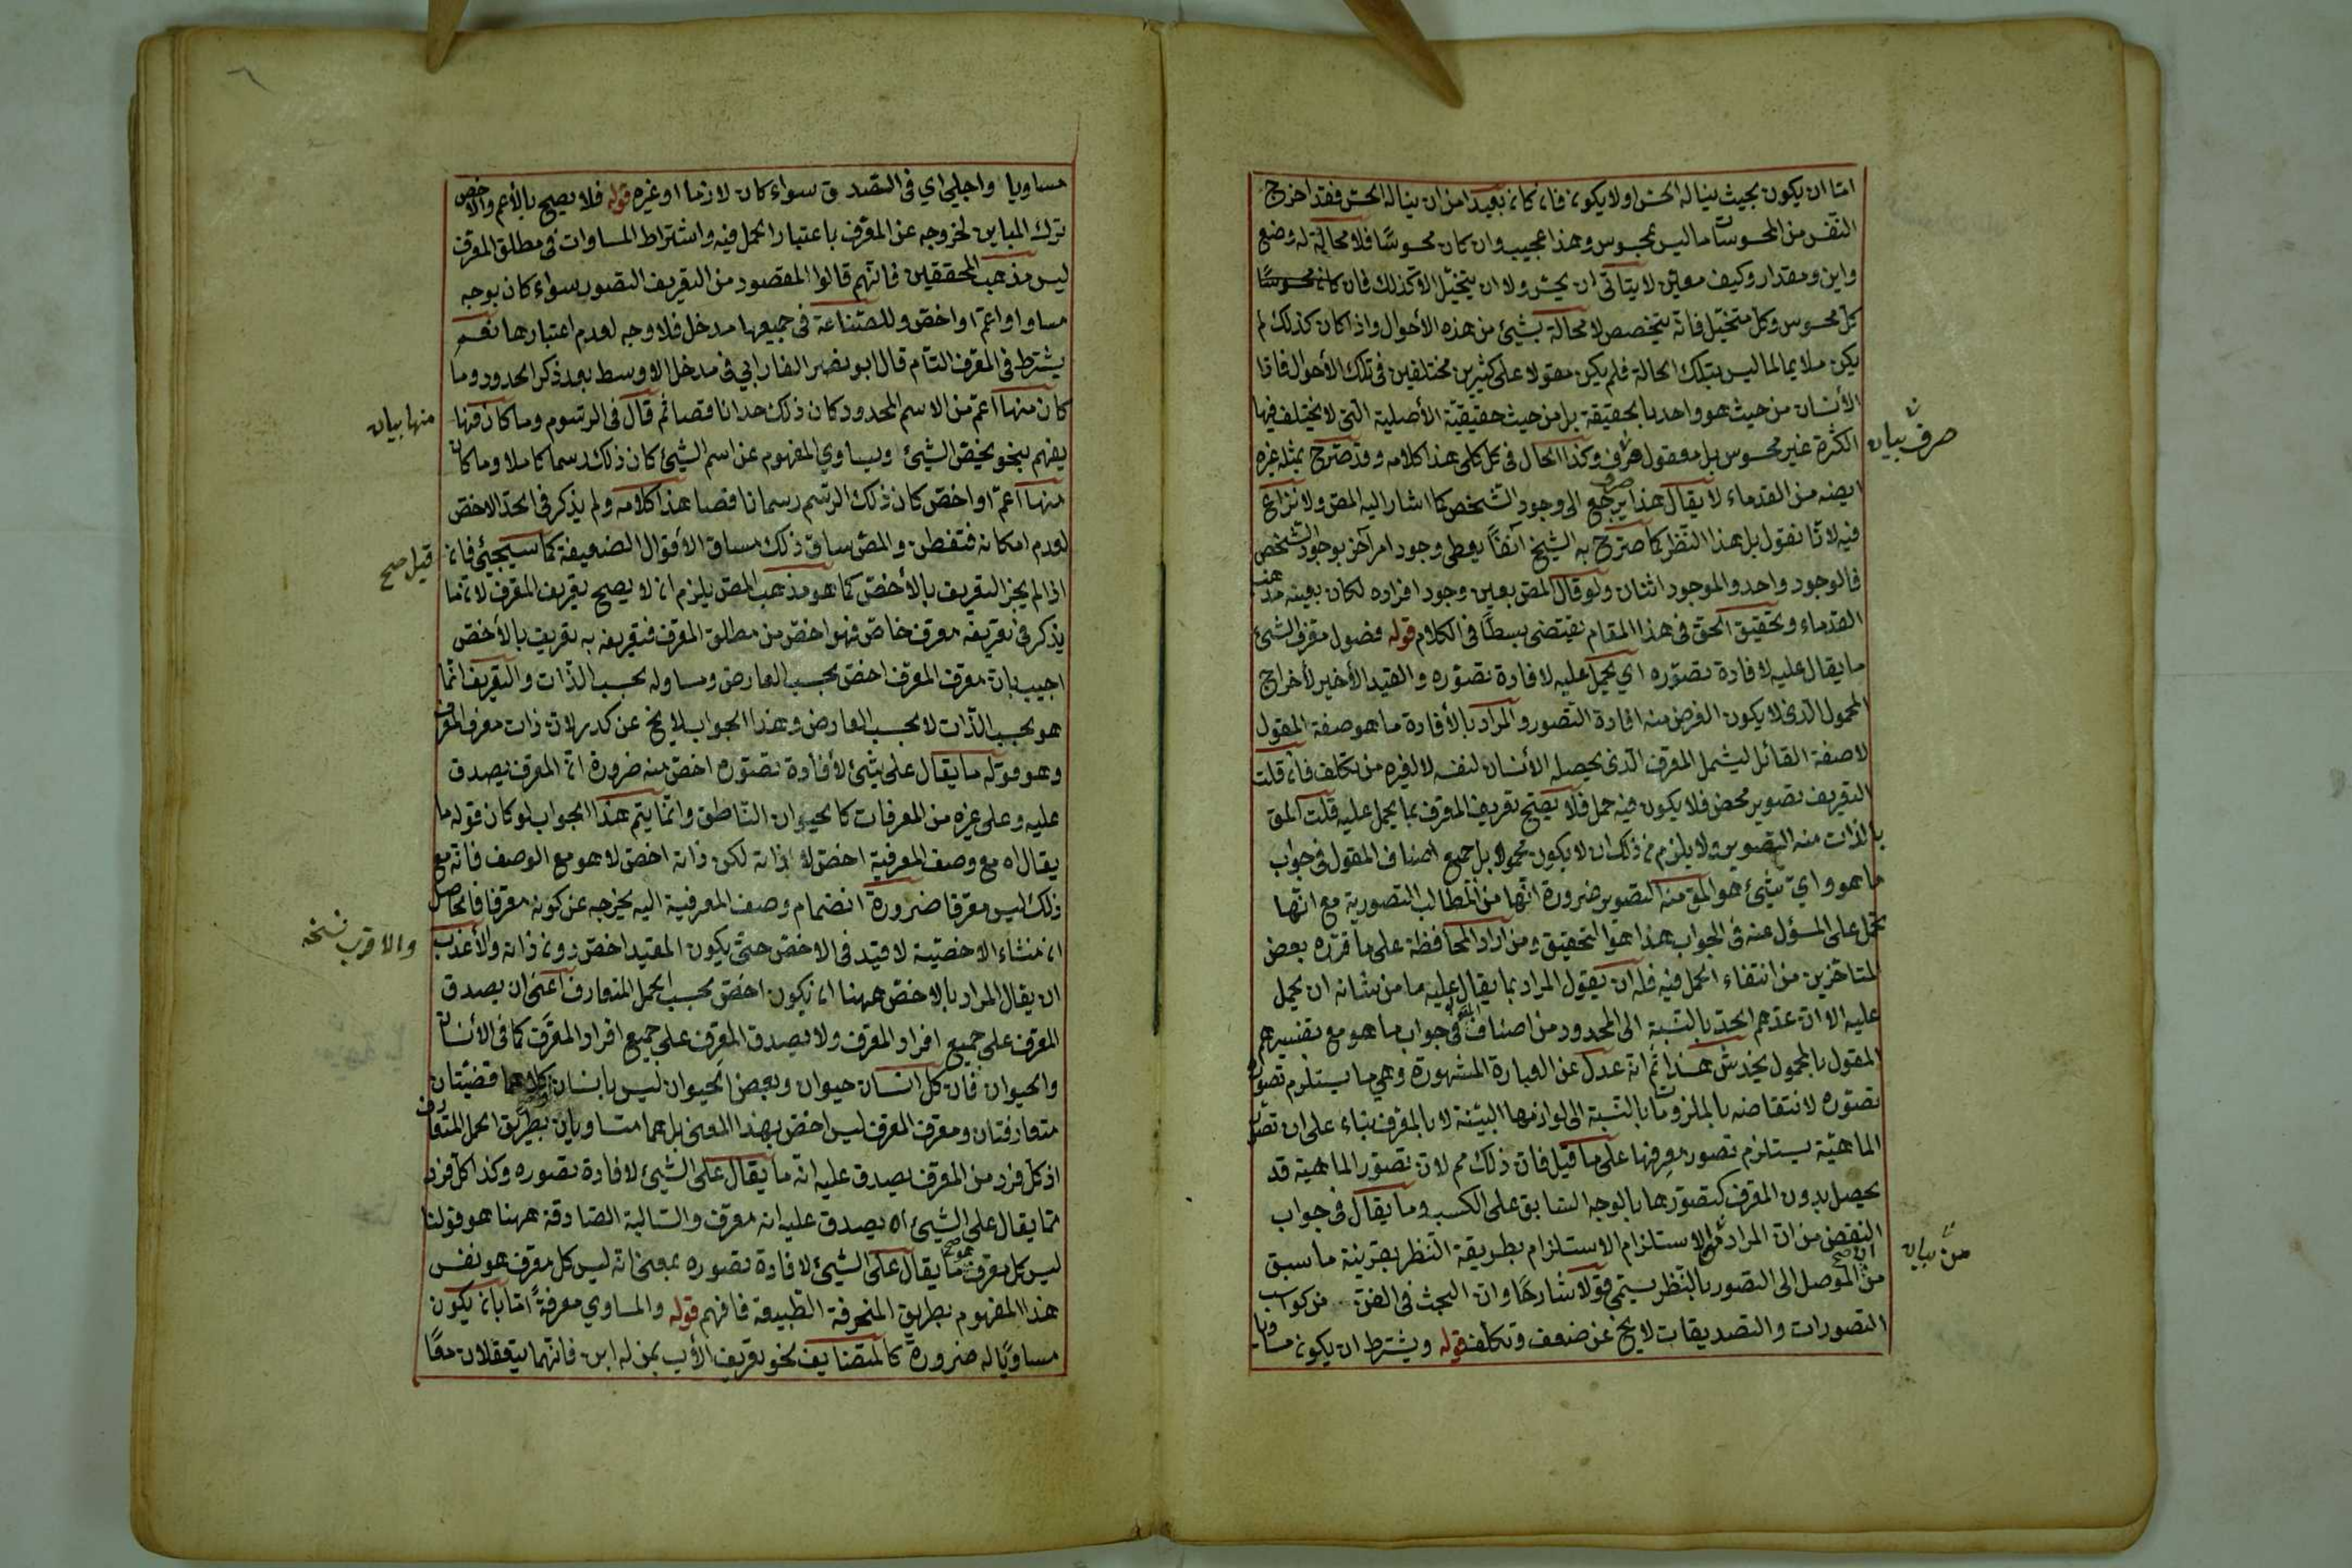 اما ان يكون بحيث يناله الحس او لا يكون فان كان بعيدا من ان يناله الحس فقد اخرج
التفتيش من المحسوسات ما ليس بمحسوس وهذا عجيب وان كان محسوسا فلا محالة له وضع
واين ومقدار وكيف معين لا يتأتى ان يحس ولا ان يتخيل الا كذلك فان
كل محسوس وكل متخيل فانه يتخصص لا محالة بشيئ من هذه الأحوال واذا كان كذلك لم
يكن ملايما لما ليس بتلك الحالة فلم يكن مقولا على كثيرين مختلفين في تلك الأحوال فاذا
الأنسان من حيث هو واحد بالحقيقة بل من حيث حقيقيّة الأصلية التي لا يختلف فيها
الكثرة غير محسوس بل معقول صرف وكذا الحال في كل كلي هذا كلامه وقد صرّح بمثله غيره
صرف بيان
ايضه من القدماء لا يقال هذا يرجع الى وجود الشخص كما اشار اليه المص ولا نزاع
فيه لانا نقول بل هذا النظر كما صرّح به الشيخ آنفًا يعطي وجود امر آخر بوجود الشخص
فالوجود واحد والموجود اثنان ولو قال المص بعين وجود افراده لكان بعينه مذهب
القدماء وتحقيق الحق في هذا المقام يقتضي بسطًا في الكلام قوله فصول معرف الشئ
ما يقال عليه لافادة تصوّره اي يحمل عليه لافادة تصوّره والقيد الأخير لأخراج
المحمول الذي لا يكون الغرض منه افادة التصور والمراد بالأفادة ما هو صفة المقول
لا صفة القائل ليشمل المعرف الذي يحصله الأنسان لنفسه لا لغيره من تكلف فان قلت
التعريف تصوير محض فلا يكون فيه حمل فلا يصح تعريف المعرف بما يحمل عليه قلت المق
بالذات منه التصوير ولا يلزم من ذلك ان لا يكون محمولا بل جميع اصناف المقول في جواب
ما هو واي شيئ هو المق منه التصوير ضرورة انها من المطالب التصورية مع انها
تحمل على المسؤل عنه في الجواب هذا هو التحقيق ومن اراد المحافظة على ما قرّره بعض
المتأخرين من انتفاء الحمل فيه فله ان يقول المراد بما يقال عليه ما من شانه ان يحمل
عليه الا ان عدّهم الحد بالنسبة الى المحدود من اصناف المق في جواب ما هو مع تفسيرهم
المقول بالمحمول يخدش هذا ثم انه عدل عن العبارة المشهورة وهي ما يستلزم تصوره
تصوّره لانتقاضه بالملزومات بالنسبة الى لوازمها البيّنة لا بالمعرف بناء على ان تصور
الماهيّة يستلزم تصور معرفها على ما قيل فان ذلك مم لان تصوّر الماهية قد
يحصل بدون المعرف كتصوّرها بالوجه السابق على الكسب وما يقال في جواب
النقض من ان المراد من الاستلزام الاستلزام بطريقة النظر بقرينة ما سبق
من بيان
من ان الموصل الى التصور بالنّظر يسمّى قولا شارحًا وان البحث في الفن من كواسب
التصورات والتصديقات لا يخ عن ضعف وتكلف قوله ويشترط ان يكون مساويا
مساويا واجلي اي في التصديق سواء كان لازما او غيره قوله فلا يصح بالأعم والأخص
ترك المباين لخروجه عن المعرف باعتبار الحمل فيه واشتراط المساوات في مطلق المعرف
ليس مذهب المحققين فانّهم قالوا المقصود من التعريف التصور سواء كان بوجه
مساو او اعمّ او اخصّ وللصّناعة في جميعها مدخل فلا وجه لعدم اعتبارها نعم
يشترط في المعرف التام قال ابو نصر الفارابي في مدخل الاوسط بعد ذكر الحدود وما
كان منها اعمّ من الاسم المحدود كان ذلك حدا ناقصا ثم قال في الرسوم وما كان منها
منها بيان
يفهم بنحو يخصّ الشيئ ويساوي المفهوم عن اسم الشيئ كان ذلك رسما كاملا وما كان
منها اعمّ او اخصّ كان ذلك الرسم رسما ناقصا هذا كلامه ولم يذكر في الحدّ الاخصّ
لعدم امكانه فتفطن والمص ساق ذلك مساق الأقوال الضعيفة كما سيجيئ فانه
قيل صح
اذا لم يجز التعريف بالأخصّ كما هو مذهب المص يلزم ان لا يصح تعريف المعرف لان ما
يذكر في تعريفه معرف خاصّ فهو اخصّ من مطلق المعرف فتعريفه به تعريف بالأخصّ
اجيب بان معرف المعرف اخصّ بحسب العارض ومساو له بحسب الذّات والتعريف انّما
هو بحسب الذّات لا بحسب العارض وهذا الجواب لا يخ عن كدر لان ذات معرف المعرف
وهو قوله ما يقال على شئ لأفادة تصوّره اخصّ منه ضرورة ان المعرف يصدق
عليه وعلى غيره من المعرفات كالحيوان النّاطق وانّما يتم هذا الجواب لو كان قوله ما
يقال اه مع وصف المعرفية اخصّ لا ذاته لكن ذاته اخصّ لا هو مع الوصف فانّه مع
ذلك ليس معرّفا ضرورة انضمام وصف المعرفية اليه يخرجه عن كونه معرّفا فالحاصل
ان منشاء الاخصّية لا قيد في الاخصّ حتى يكون المقيد اخصّ دون ذاته والأعذب
والأقرب نسخه
ان يقال المراد بالاخصّ ههنا ان يكون اخصّ بحسب الحمل المتعارف اعني ان يصدق
المعرف على جميع افراد المعرف ولا يصدق المعرف على جميع افراد المعرّف كما في الأنسان
والحيوان فان كل انسان حيوان وبعض الحيوان ليس بانسان كلاهما قضيّتان
متعارفتان ومعرف المعرف ليس اخصّ بهذا المعنى بل هما متساويان بطريق الحمل المتعارف
اذ كل فرد من المعرف يصدق عليه انّه ما يقال على الشيئ لافادة تصوره وكذا كلّ فرد
مما يقال على الشيئ اه يصدق عليه انه معرف والسّالبة الصّادقة ههنا هو قولنا
ليس كل معرف هو ما يقال على الشيئ لافادة تصوره بمعنى انّه ليس كل معرف هو نفس
هذا المفهوم بطريق المنحرفة الطبيعة فافهم قوله والمساوي معرفةً امّا بان يكون
مساويًا له ضرورة كالمتضايف نحو تعريف الأب بمن له ابن فانّهما يتعقلان معًا